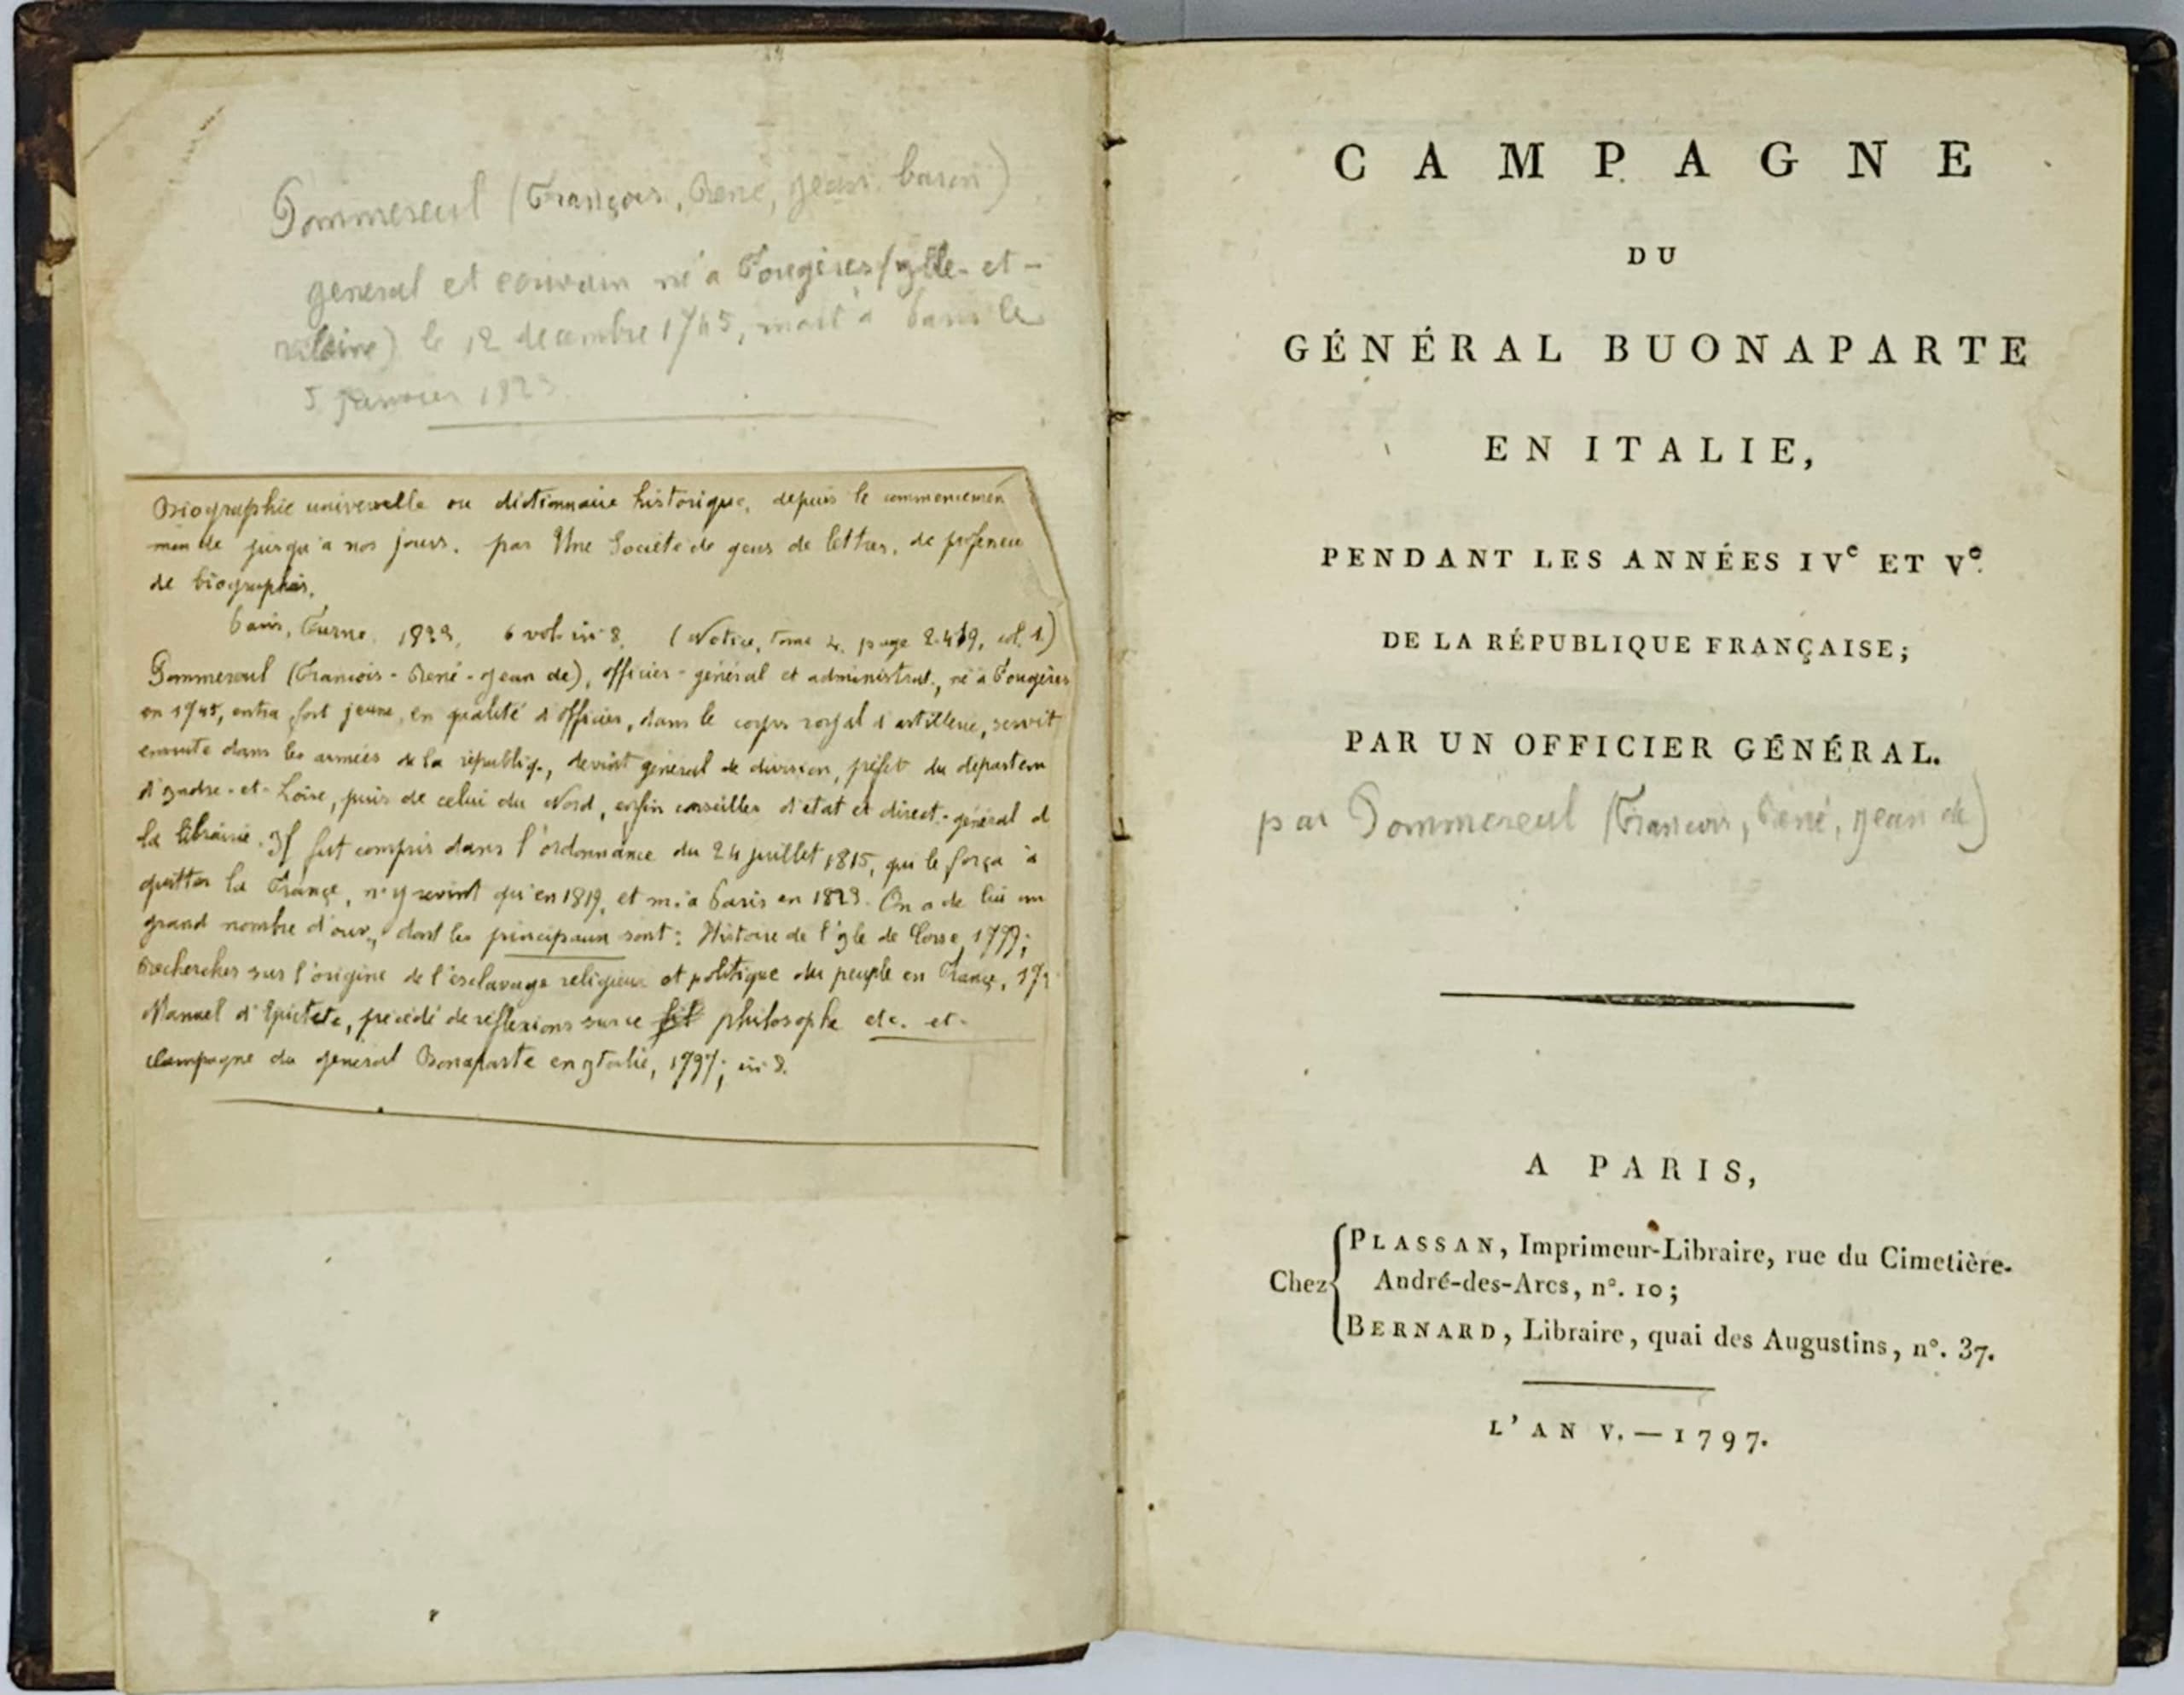 Pommereul (François, René, Jean, baron)
general et ecrivain né a Fougères (Ille-et-
vilaine) le 12 decembre 1745, mort a Paris le
5 Janvier 1823.
Biographie universelle ou dictionnaire historique, depuis le commencemen
mon de jusqu'a nos jours. par Une Société de gens de lettres, de professeu
de biographes.
Paris, Furne, 6 vol. in 8. (Notice, Tome 4. page col. 1.)
Pommereul (Francois-René-Jean de), officier-général et administrat., né a Fougères
en 1745, entra fort jeune, en qualité d'officier, dans le corps royal d'artillerie, servit
ensuite dans les armées de la républiq., devint général de division, préfet du departem
d'Indre-et-Loire, puis de celui du Nord, enfin conseiller d'etat et direct.-général d
la librairie. Il fut compris dans l'ordonnance du 24 juillet 1815, qui le força à
quitter la France, n'y revint qu'en 1819, et m. a Paris en 1823. On a de lui un
grand nombre d'ouv., dont les principaux sont: Histoire de l'Ile de Corse,
Recherches sur l'origine de l'esclavage religieux et politique du peuple en France, 17
Manuel d'Epictete, précédé de réflexions sur ce philosophe etc. et.
Campagne du general Bonaparte en Italie, 1797; in 8.
CAMPAGNE
DU
GÉNÉRAL BUONAPARTE
EN ITALIE,
PENDANT LES ANNÉES IVe ET Ve.
DE LA RÉPUBLIQUE FRANÇAISE;
PAR UN OFFICIER GÉNÉRAL.
par Pommereul (Francois, René, Jean de)
A PARIS,
Chez { PLASSAN, Imprimeur-Libraire, rue du Cimetière-
André-des-Arcs, n°. 10;
BERNARD, Libraire, quai des Augustins, n°. 37.
L'AN V.—1797.